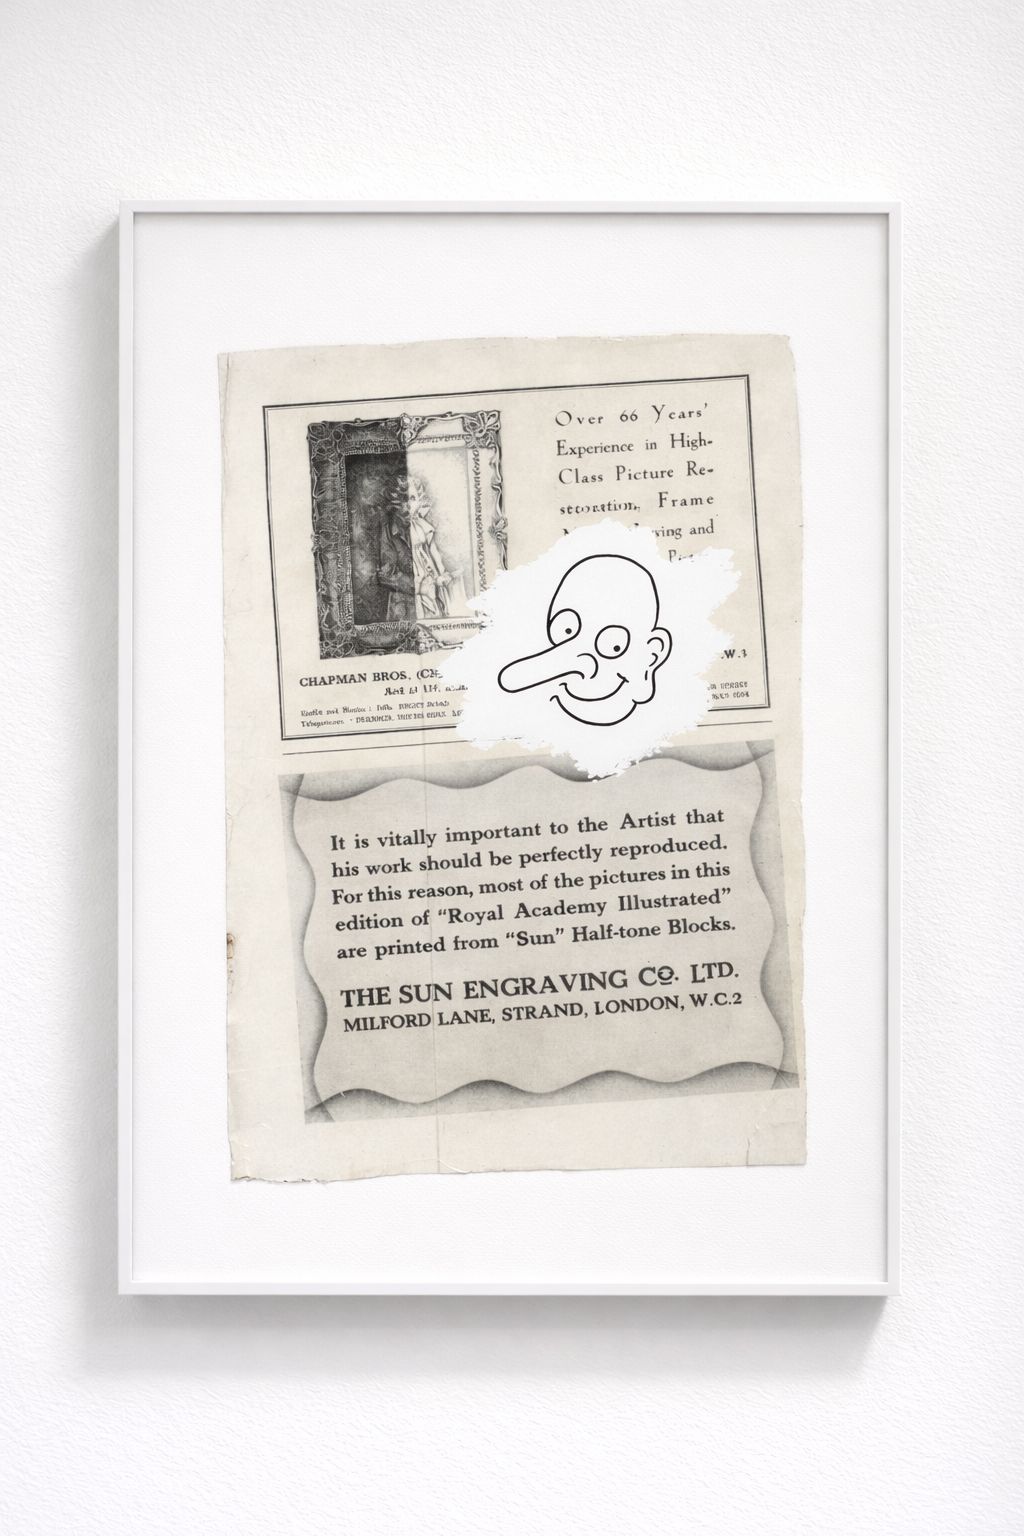 Over 66 Years'
Experience in High-
Class Picture Re-
Frame
and
CHAPMAN BROS.
W.3
It is vitally important to the Artist that
his work should be perfectly reproduced.
For this reason, most of the pictures in this
edition of “Royal Academy Illustrated”
are printed from “Sun” Half-tone Blocks.
THE SUN ENGRAVING CO. LTD.
MILFORD LANE, STRAND, LONDON, W.C.2